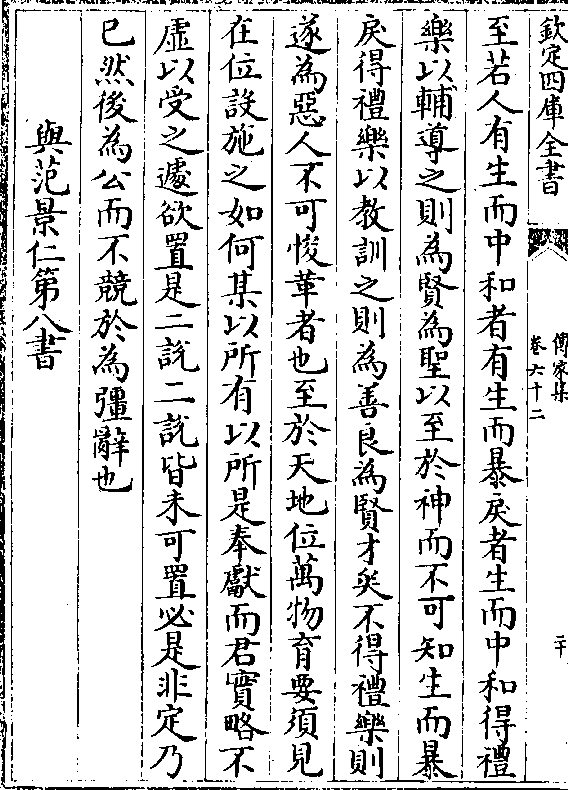 欽定四庫全書
傳家集
卷六十二
二十
至若人有生而中和者有生而暴戾者生而中和得禮
樂以輔導之則為賢為聖以至於神而不可知生而暴
戾得禮樂以教訓之則為善良為賢才矣不得禮樂則
遂為惡人不可悛革者也至於天地位萬物育要須見
在位設施之如何某以所有以所是奉獻而君實略不
虛以受之遽欲置是二說二說皆未可置必是非定乃
已然後為公而不競於為彊辭也
與范景仁第八書